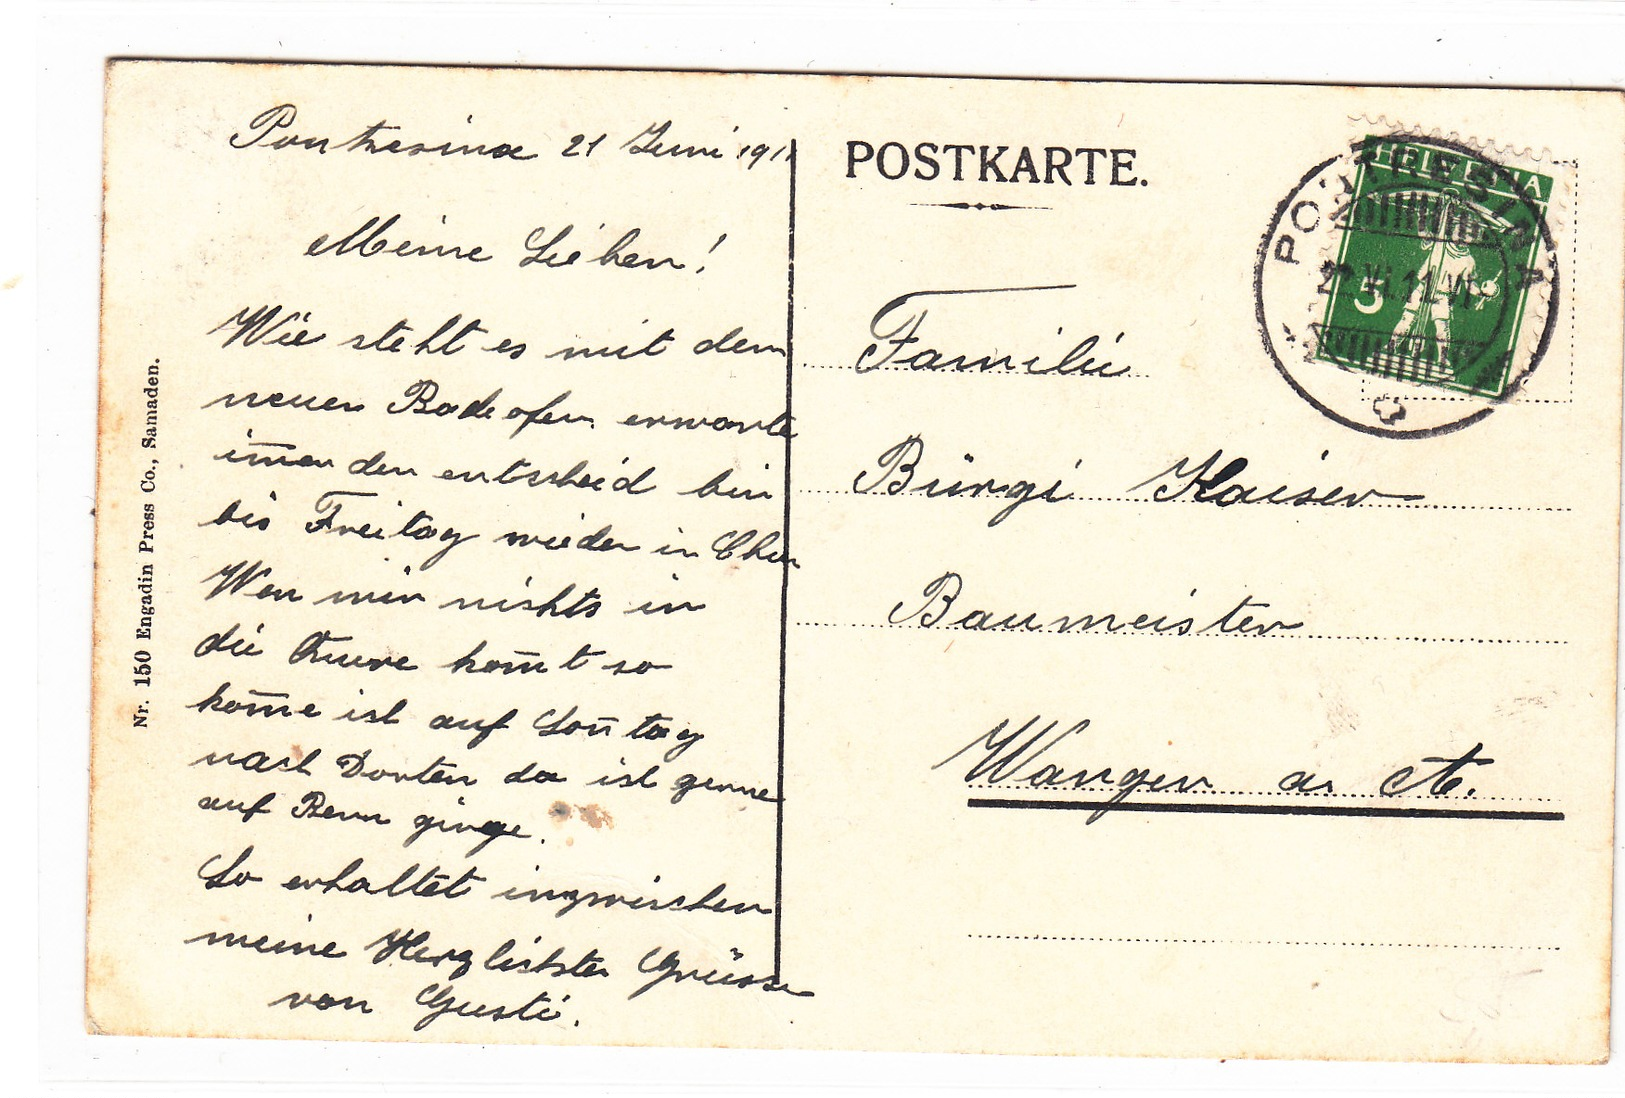 Pontresina 21 Juni 1911
Meine Lieben!
Wie steht es mit dem
neuen Badeofen, erwarte
im̅er den entscheid bin
bis Freitag wieder in Chur
Wen mir nichts in
die Quere kom̅t so
kom̅e ich auf Son̅tag
nach Dorten da ich gerne
auf Bern ginge.
So erhaltet inzwischen
meine Herzlichsten Grüsse
von Gusti.
Nr. 150 Engadin Press Co., Samaden.
POSTKARTE.
HELVETIA
5
PONTRESINA
VI.11
Familie
Bürgi Kaiser
Baumeister
Wangen a. A.